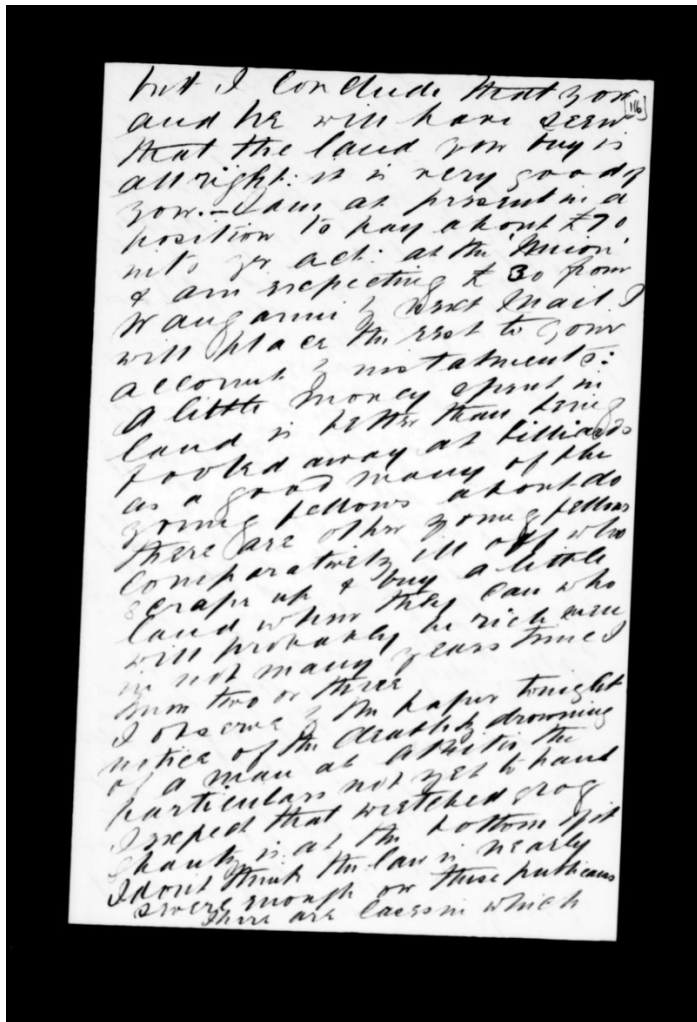 but I conclude that you
[116]
and he will have seen
that the land you buy is
all right: it is very good of
you. - I am at present in a
position to pay about £70
into yr acct: at the 'Union'
& am expecting £30 from
Wanganui by next mail I
will place the rest to your
account by instalments:
A little money spent in
land is better than being
fooled away at billiards
as a good many of the
young fellows about do
there are other young fellows
comparatively ill off who
scrape up & buy a little
land when they can who
will probably be rich men
in not many years time I
know two or three
I observe by the paper tonight
notice of the death by drowning
of a man at the
particulars not yet to hand
I expect that wretched grog
shanty is at the bottom of it
I don't think the law is nearly
severe enough on these publicans
There are cases in which